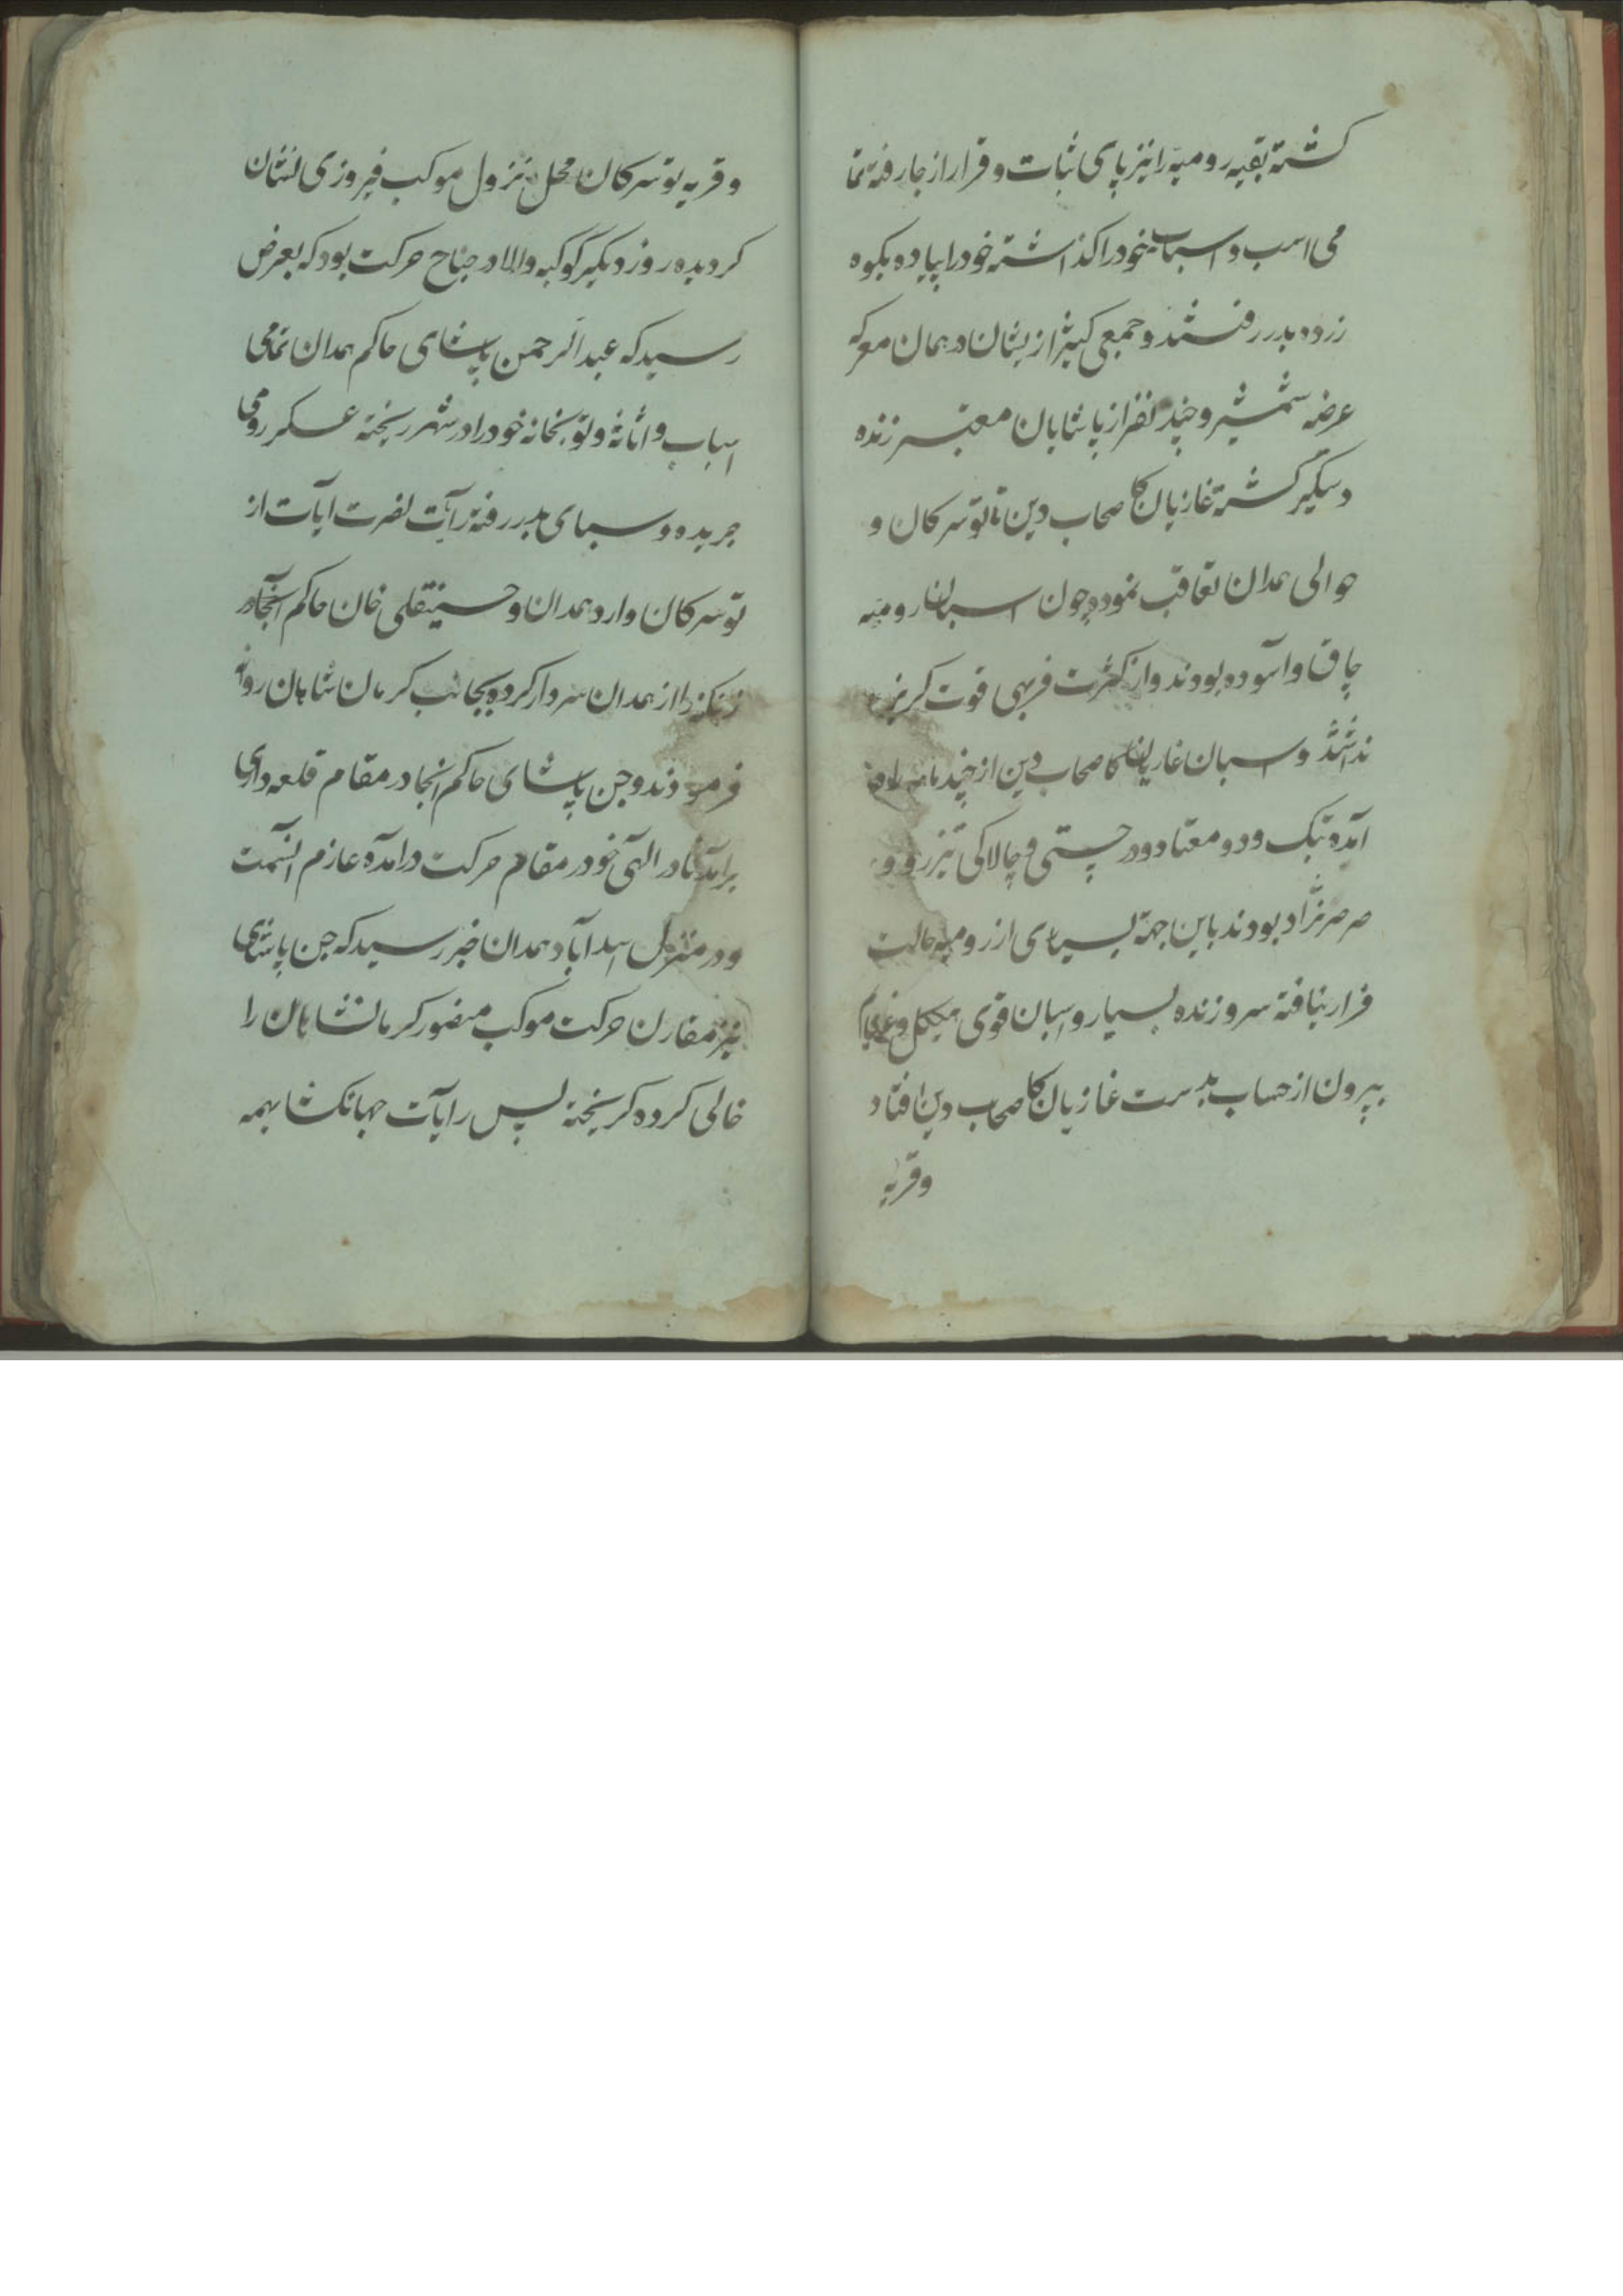 کشته بقیه رومیه را نیز پای ثبات و قرار از جا رفته تما
می اسب و اسباب خود را کذاشته خود را پیاده بکوه
زده بدر رفتند و جمعی کثیر از یشان در همان معرکه
عرضه شمشیر و چند نفر از پاشایان معتبر زنده
دستکیر کشته غازیان نصاحب دین تا توسرکان و
حوالی همدان تعاقب نموده چون اسبان رومیه
چاق و آسوده بودند و از کثرت فربهی قوت کریز
نداشتند و اسبان غازیان از چند
آمده بتک و دو معتاد و در چستی و چالاکی تیز رو و
صرصر نژاد بودند باین جهة بسیاری از رومیه حالت
فرار نیافته سر و زنده بسیار و اسبان قوی هیکل و
بیرون از حساب بدست غازیان دین افتاد
وقریه
و قریه توسرکان محل نزول موکب فیروزی نشان
کردیده روز دیکر کوکبه والا در جناح حرکت بود که بعرض
رسید که عبد الرحمن پاشای حاکم همدان تمامی
اسباب و اثاثه و توبخانه خود را در شهر ریخته عسکر رومی
جریده و سبای بدر رفته رآیت نصرت آیات از
توسرکان وارد همدان و حسینقلی خان حاکم آنجا
زنکنه را از همدان سردار کرده بجانب کرمان شاهان روانه
فرمودند و حسن پاشای حاکم آنجا در مقام قلعه داری
برآمده نادر الهی خود در مقام حرکت درآمده عازم آنسمت
و در منزل اسدآباد همدان خبر رسید که حسن پاشای
نیز مقارن حرکت موکب منصور کرمانشاهان را
خالی کرده کریخته پس رایآت جهانکشا بهمه